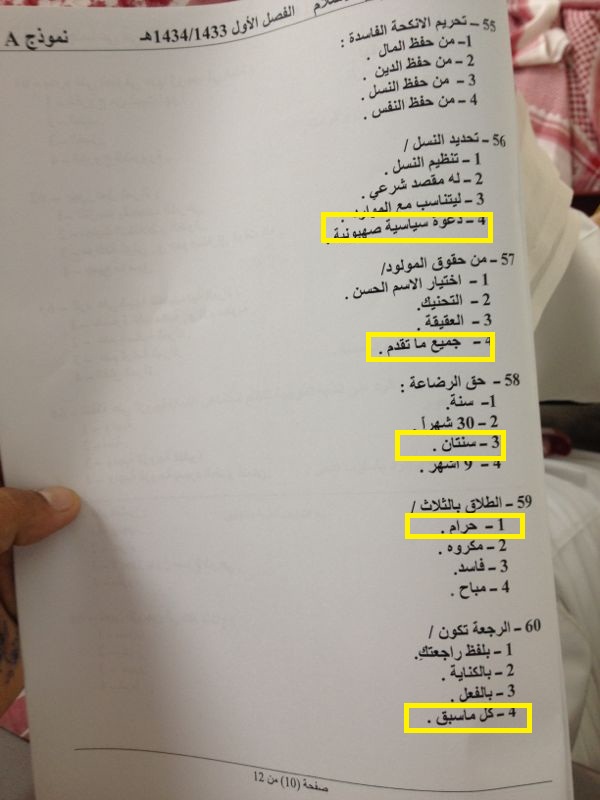 الفصل الأول 1434/1433هـ نموذج A
55 – تحريم الانكحة الفاسدة :
1– من حفظ المال .
2 – من حفظ الدين .
3 – من حفظ النسل .
4 – من حفظ النفس .
56 – تحديد النسل /
1 – تنظيم النسل .
2 – له مقصد شرعي .
3 – ليتناسب مع الموارد .
4 – دعوة سياسية صهيونية .
57 – من حقوق المولود/
1 – اختيار الاسم الحسن .
2 – التحنيك.
3 – العقيقة .
4 – جميع ما تقدم .
58 – حق الرضاعة :
1– سنة.
2 – 30 شهراً .
3 – سنتان .
4 – 9 أشهر .
59 – الطلاق بالثلاث /
1 – حرام .
2 – مكروه .
3 – فاسد.
4 – مباح .
60 – الرجعة تكون /
1 – بلفظ راجعتكِ.
2 – بالكناية .
3 – بالفعل .
4 – كل ماسبق .
صفحة (10) من 12